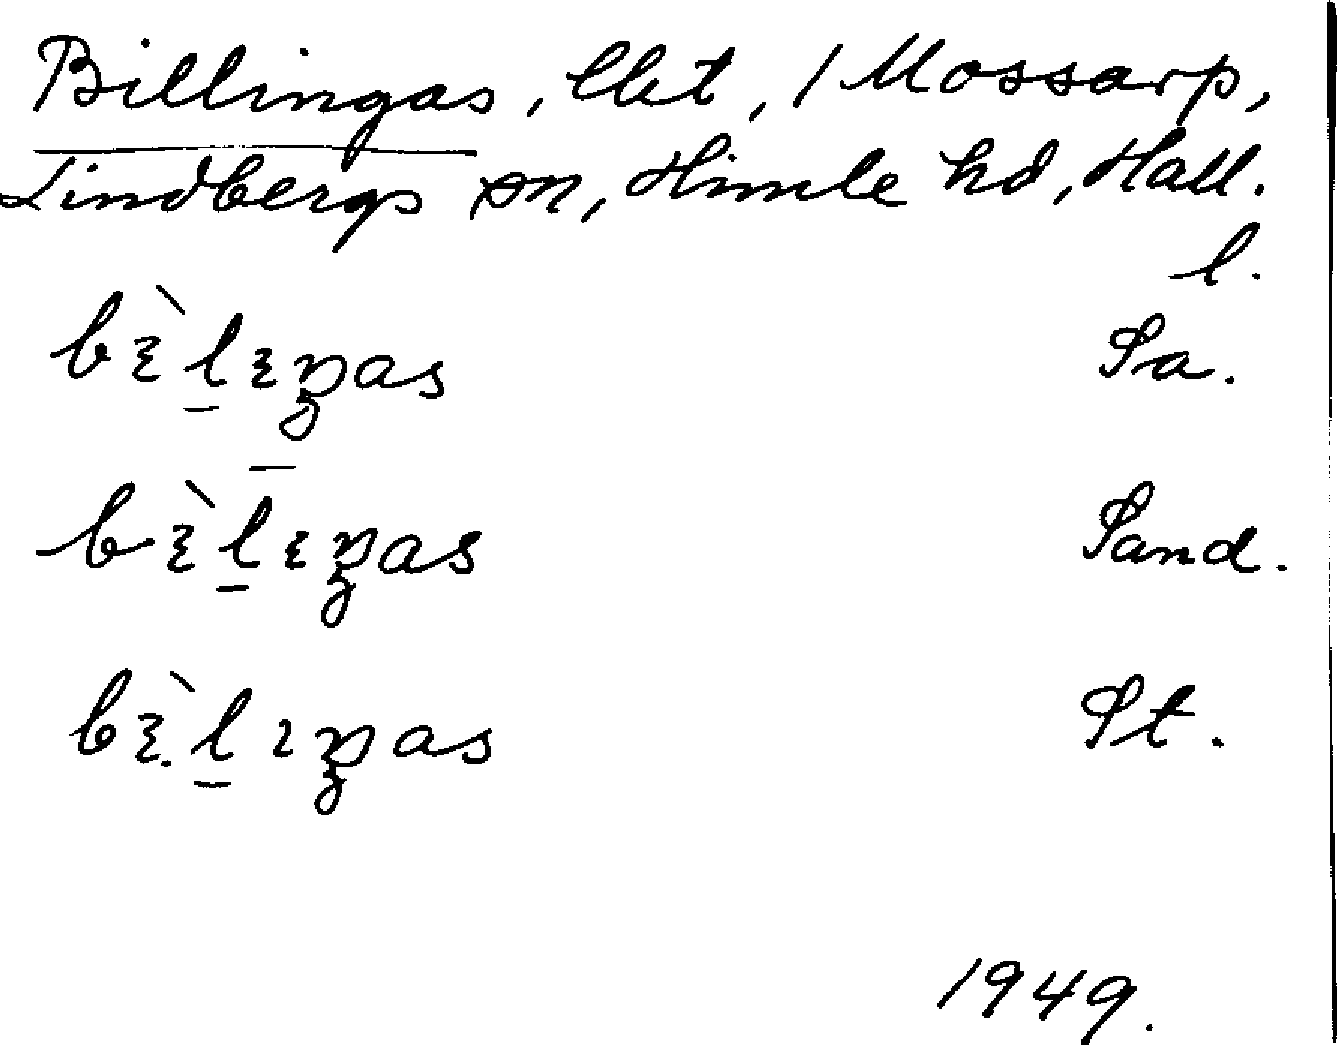 Billingas, lht, 1 Mossarp,
Lindbergs sn, Himle hd, Hall.
l.
bɛ̀lɛŋas Sa.
bɛ̀lɛŋas Sand.
bɛ̣̀lɪŋas St.
1949.